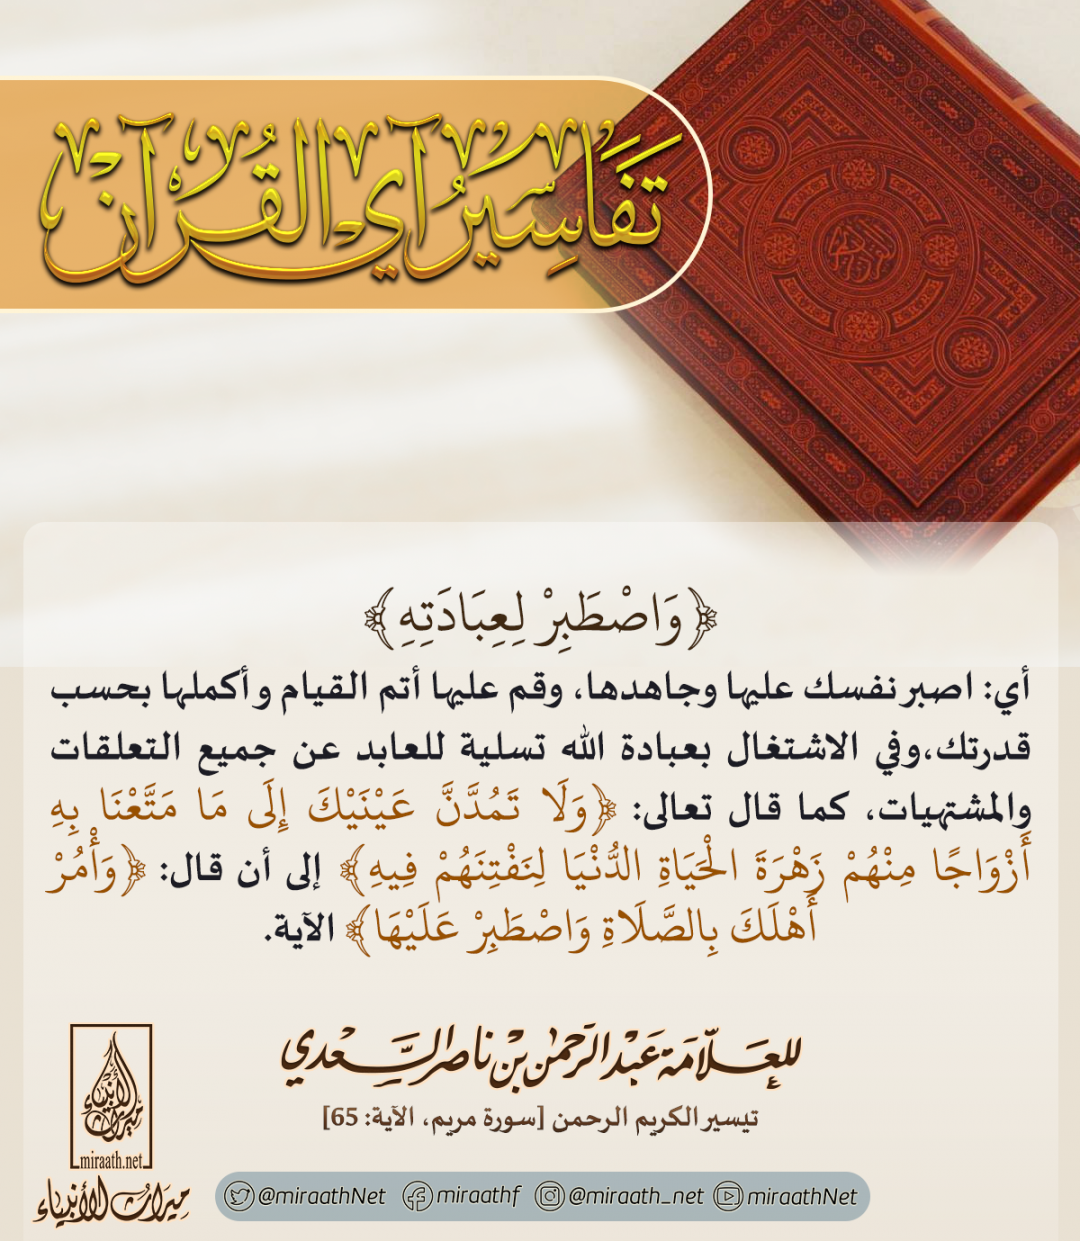 تَفَاسِيرُ آيِ القُرآن
القرآن الكريم
﴿وَاصْطَبِرْ لِعِبَادَتِهِ﴾
أي: اصبر نفسك عليها وجاهدها، وقم عليها أتم القيام وأكملها بحسب
قدرتك،وفي الاشتغال بعبادة الله تسلية للعابد عن جميع التعلقات
والمشتهيات، كما قال تعالى: ﴿وَلَا تَمُدَّنَّ عَيْنَيْكَ إِلَى مَا مَتَّعْنَا بِهِ
أَزْوَاجًا مِنْهُمْ زَهْرَةَ الْحَيَاةِ الدُّنْيَا لِنَفْتِنَهُمْ فِيهِ﴾ إلى أن قال: ﴿وَأْمُرْ
أَهْلَكَ بِالصَّلَاةِ وَاصْطَبِرْ عَلَيْهَا﴾ الآية.
للعلّامة عبدالرحمن بن ناصر السعدي
تيسير الكريم الرحمن [سورة مريم، الآية: 65]
ميراث الأنبياء
miraath.net
ميراث الأنبياء
@miraathNet miraathf @miraath_net miraathNet